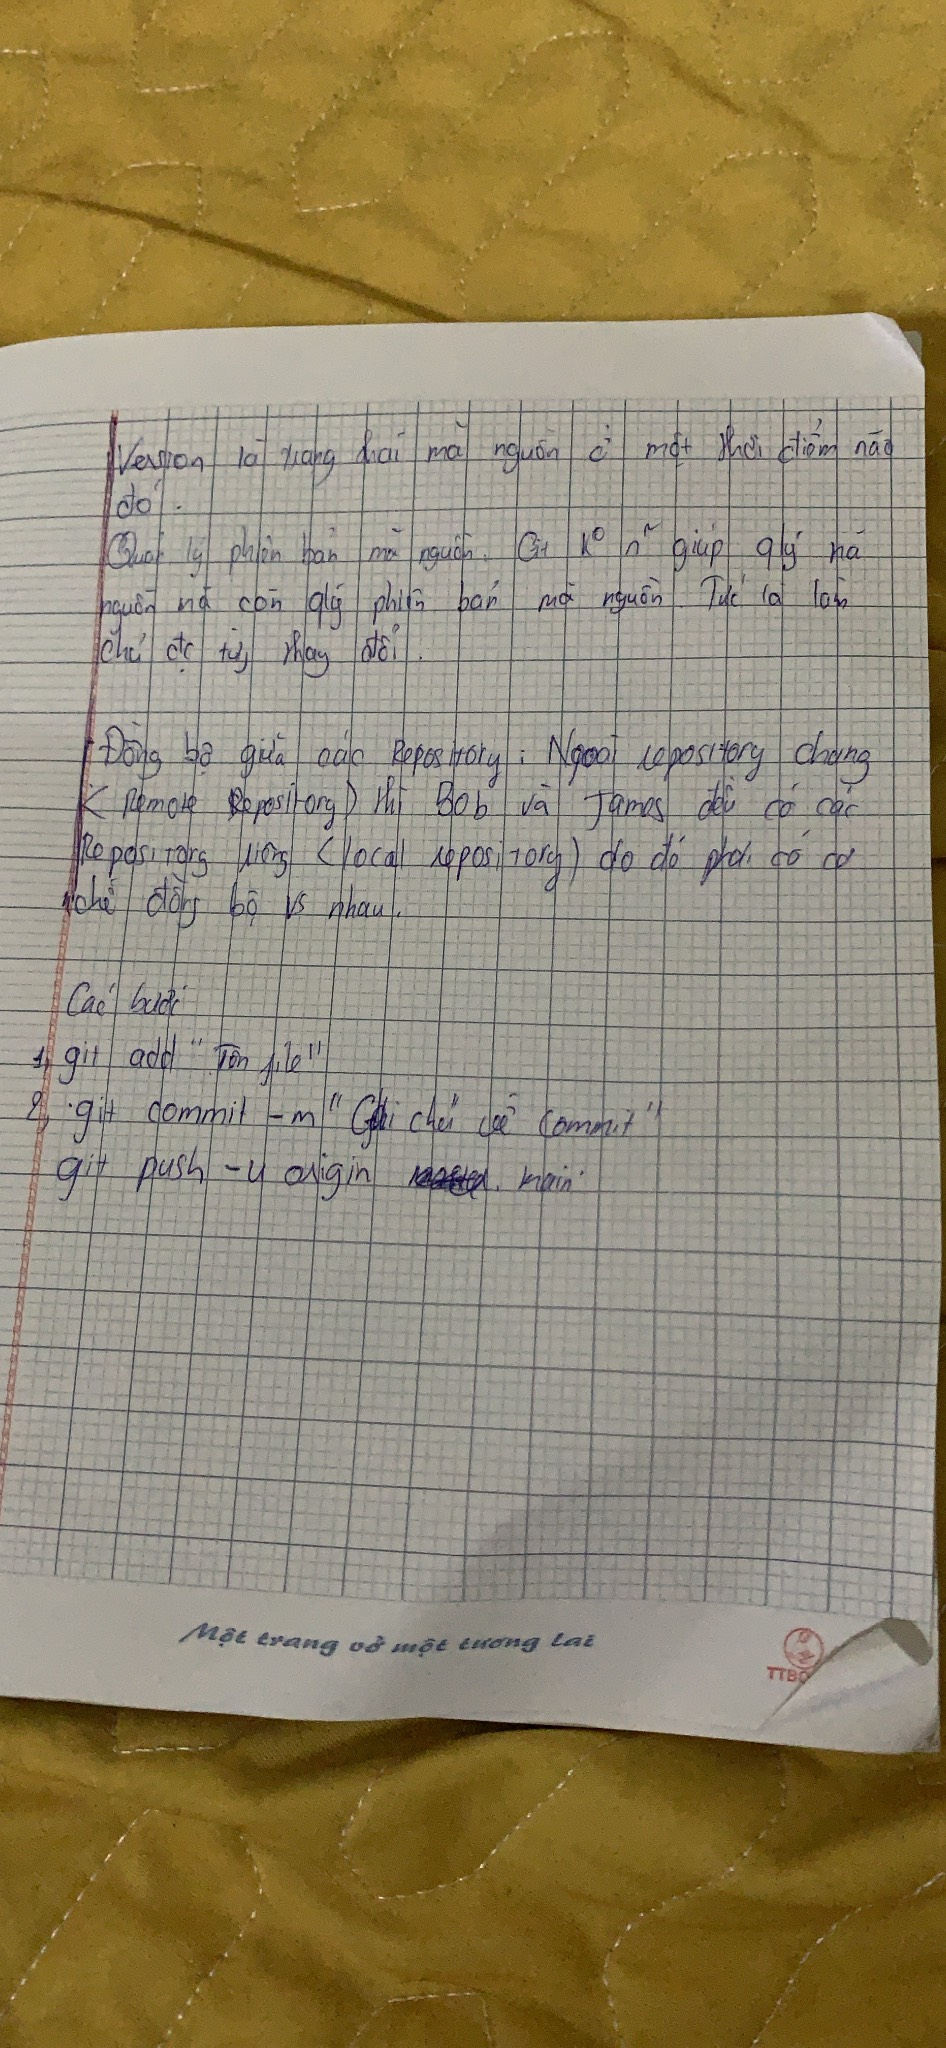 Version là trạng thái mã nguồn ở một thời điểm nào
đó.
Quản lý phiên bản mã nguồn. Git k° n~ giúp qlý mã
nguồn mà còn qlý phiên bản mã nguồn. Tức là làm
chủ đc từng thay đổi.
Đồng bộ giữa các Repository: Ngoài repository chung
(Remote Repository) thì Bob và James đều có các
Repository riêng (local repository) do đó phải có cơ
chế đồng bộ vs nhau.
Các bước
1, git add "Tên file"
2, git commit -m "Ghi chú về Commit"
git push -u origin main
Một trang vở một tương lai
TTBD